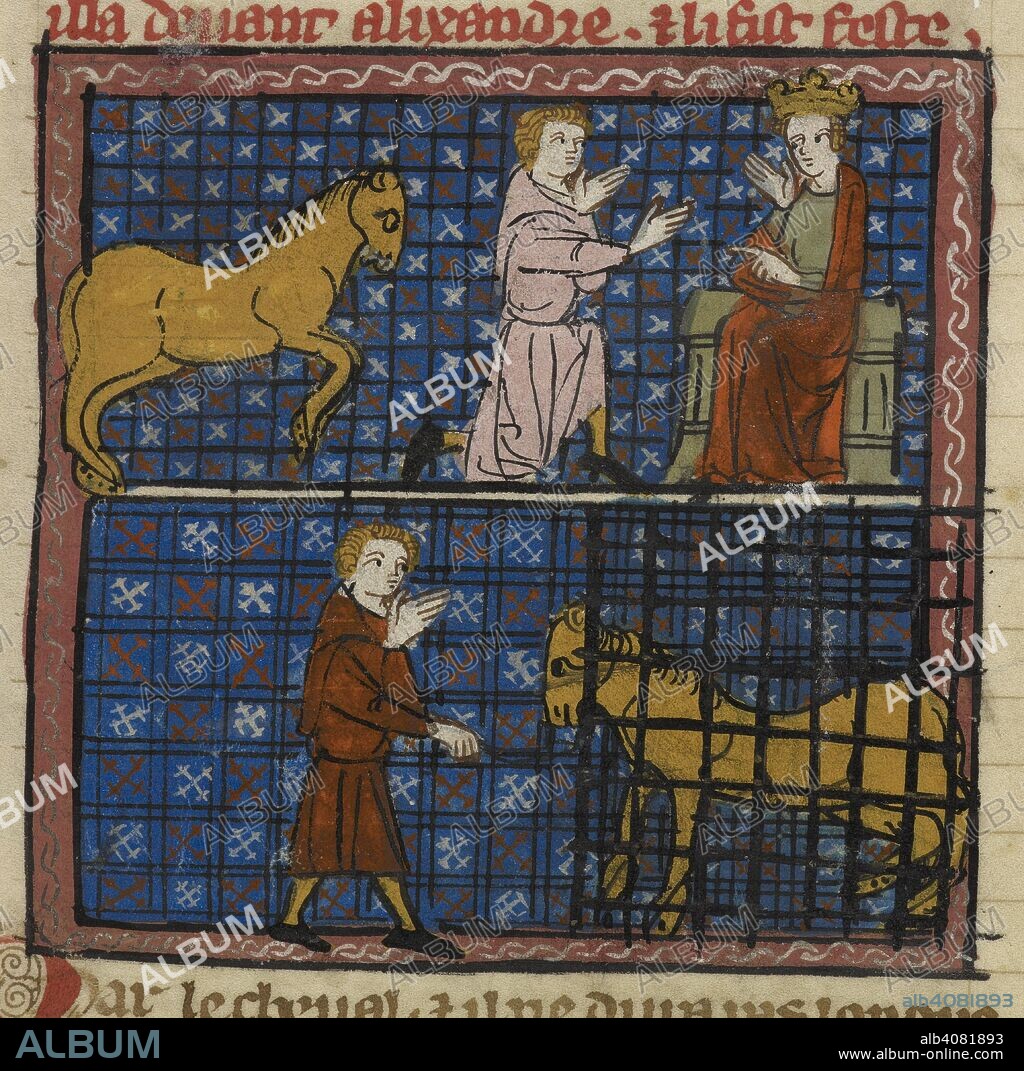 illa deuant alixandre. & li fist feste.
ar le cheual.
alb4081893
ALBUM
alb4081893
www.album-online.com